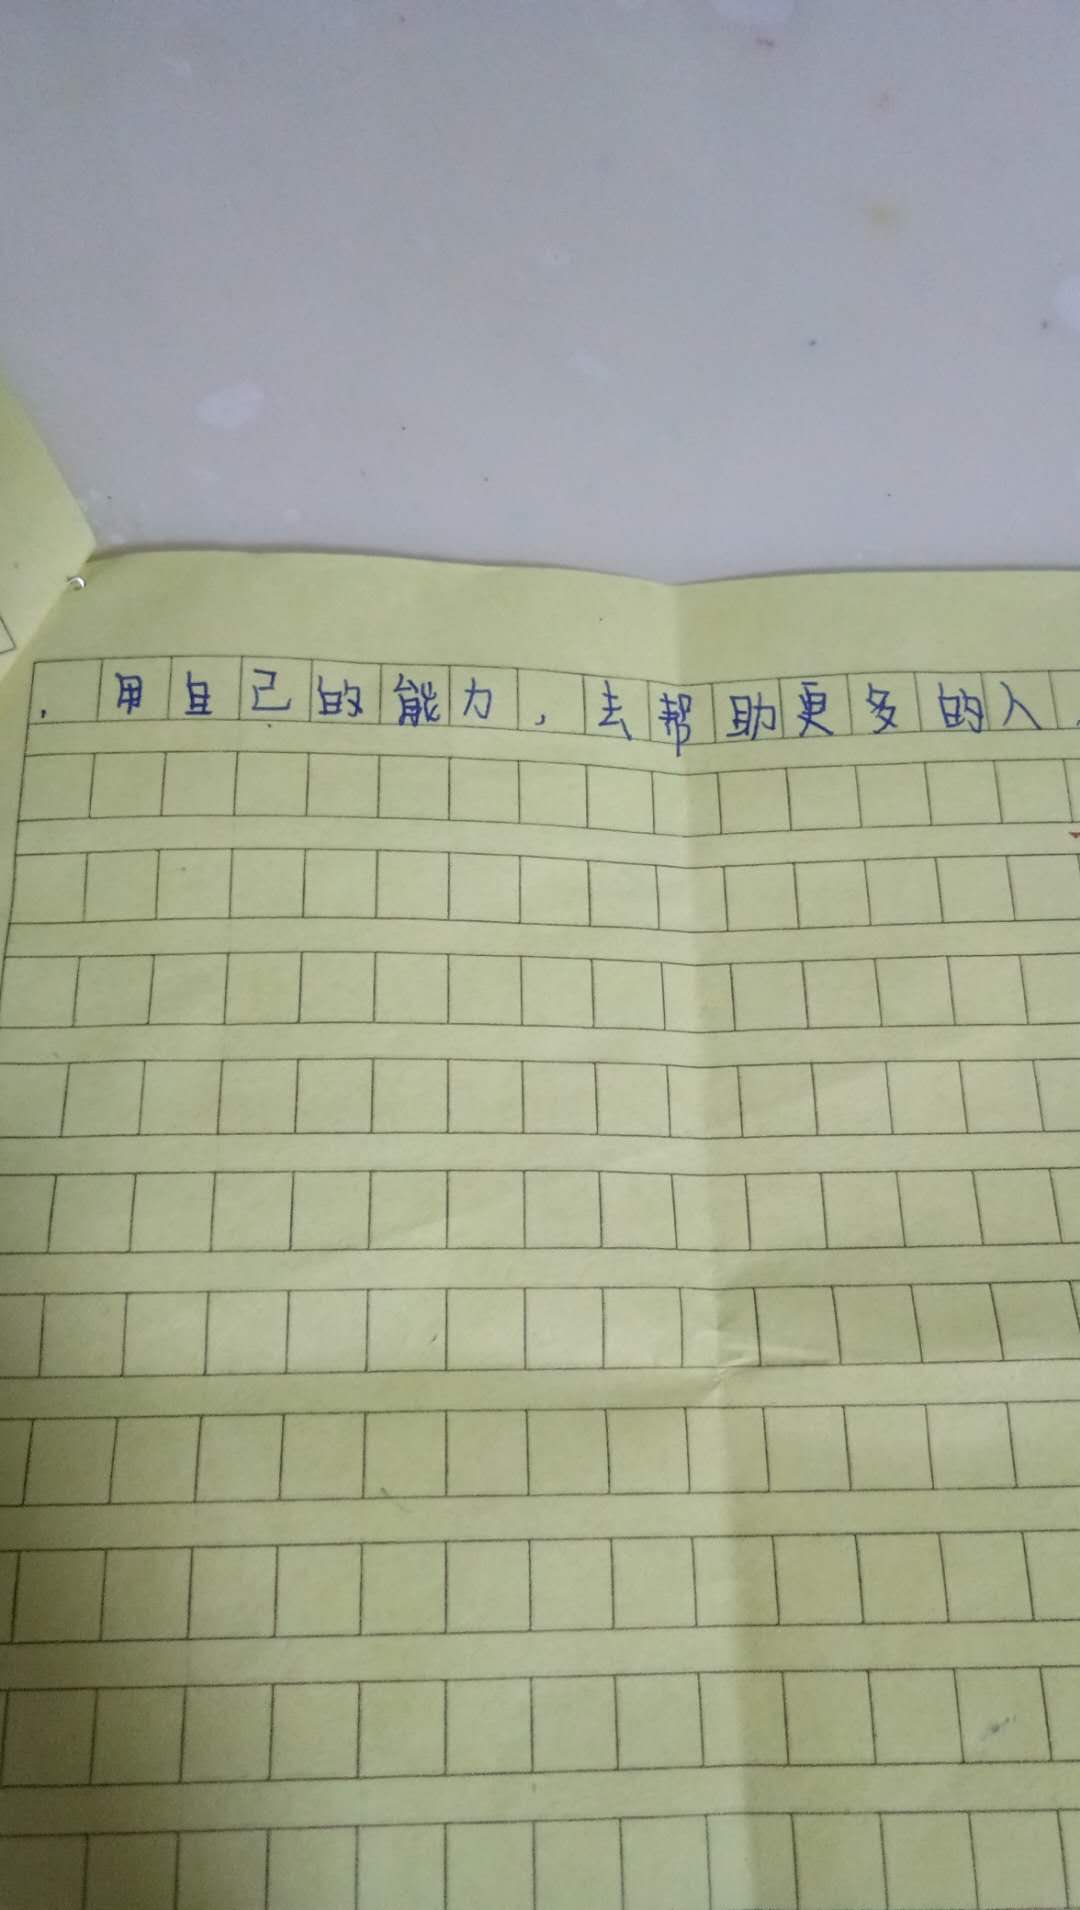 ，用自己的能力，去帮助更多的人